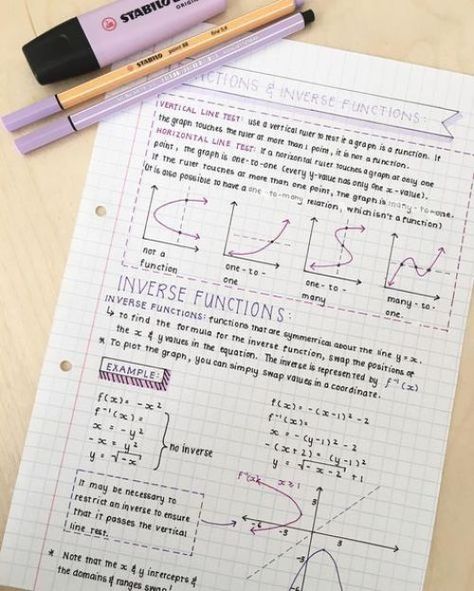 STABILO
ORIGINAL
STABILO point 88 fine 0.4
& INVERSE FUNCTIONS:
VERTICAL LINE TEST: use a vertical ruler to test if a graph is a function. If
the graph touches the ruler at more than 1 point, it is not a function.
HORIZONTAL LINE TEST: if a horizontal ruler touches a graph at only one
point, the graph is one-to-one (every y-value has only one x-value).
If the ruler touches at more than one point, the graph is many-to-one.
(It is also possible to have a one-to-many relation, which isn't a function)
not a
function
one-to-
one
one-to-
many
many-to-
one.
INVERSE FUNCTIONS:
INVERSE FUNCTIONS: functions that are symmetrical about the line y=x.
↳ to find the formula for the inverse function, swap the positions of
the x & y values in the equation. The inverse is represented by f⁻¹(x)
* To plot the graph, you can simply swap values in a coordinate.
EXAMPLE:
f(x) = -x²
f⁻¹(x) =
x = -y²
-x = y²
y = √-x
no inverse
f(x) = -(x-1)² - 2
f⁻¹(x) =
x = -(y-1)² - 2
-(x+2) = (y-1)²
y = √-x-2 + 1
It may be necessary to
restrict an inverse to ensure
that it passes the vertical
line test.
x≥1
3
-6
-3
3
-3
* Note that the x & y intercepts &
the domains & ranges swap!